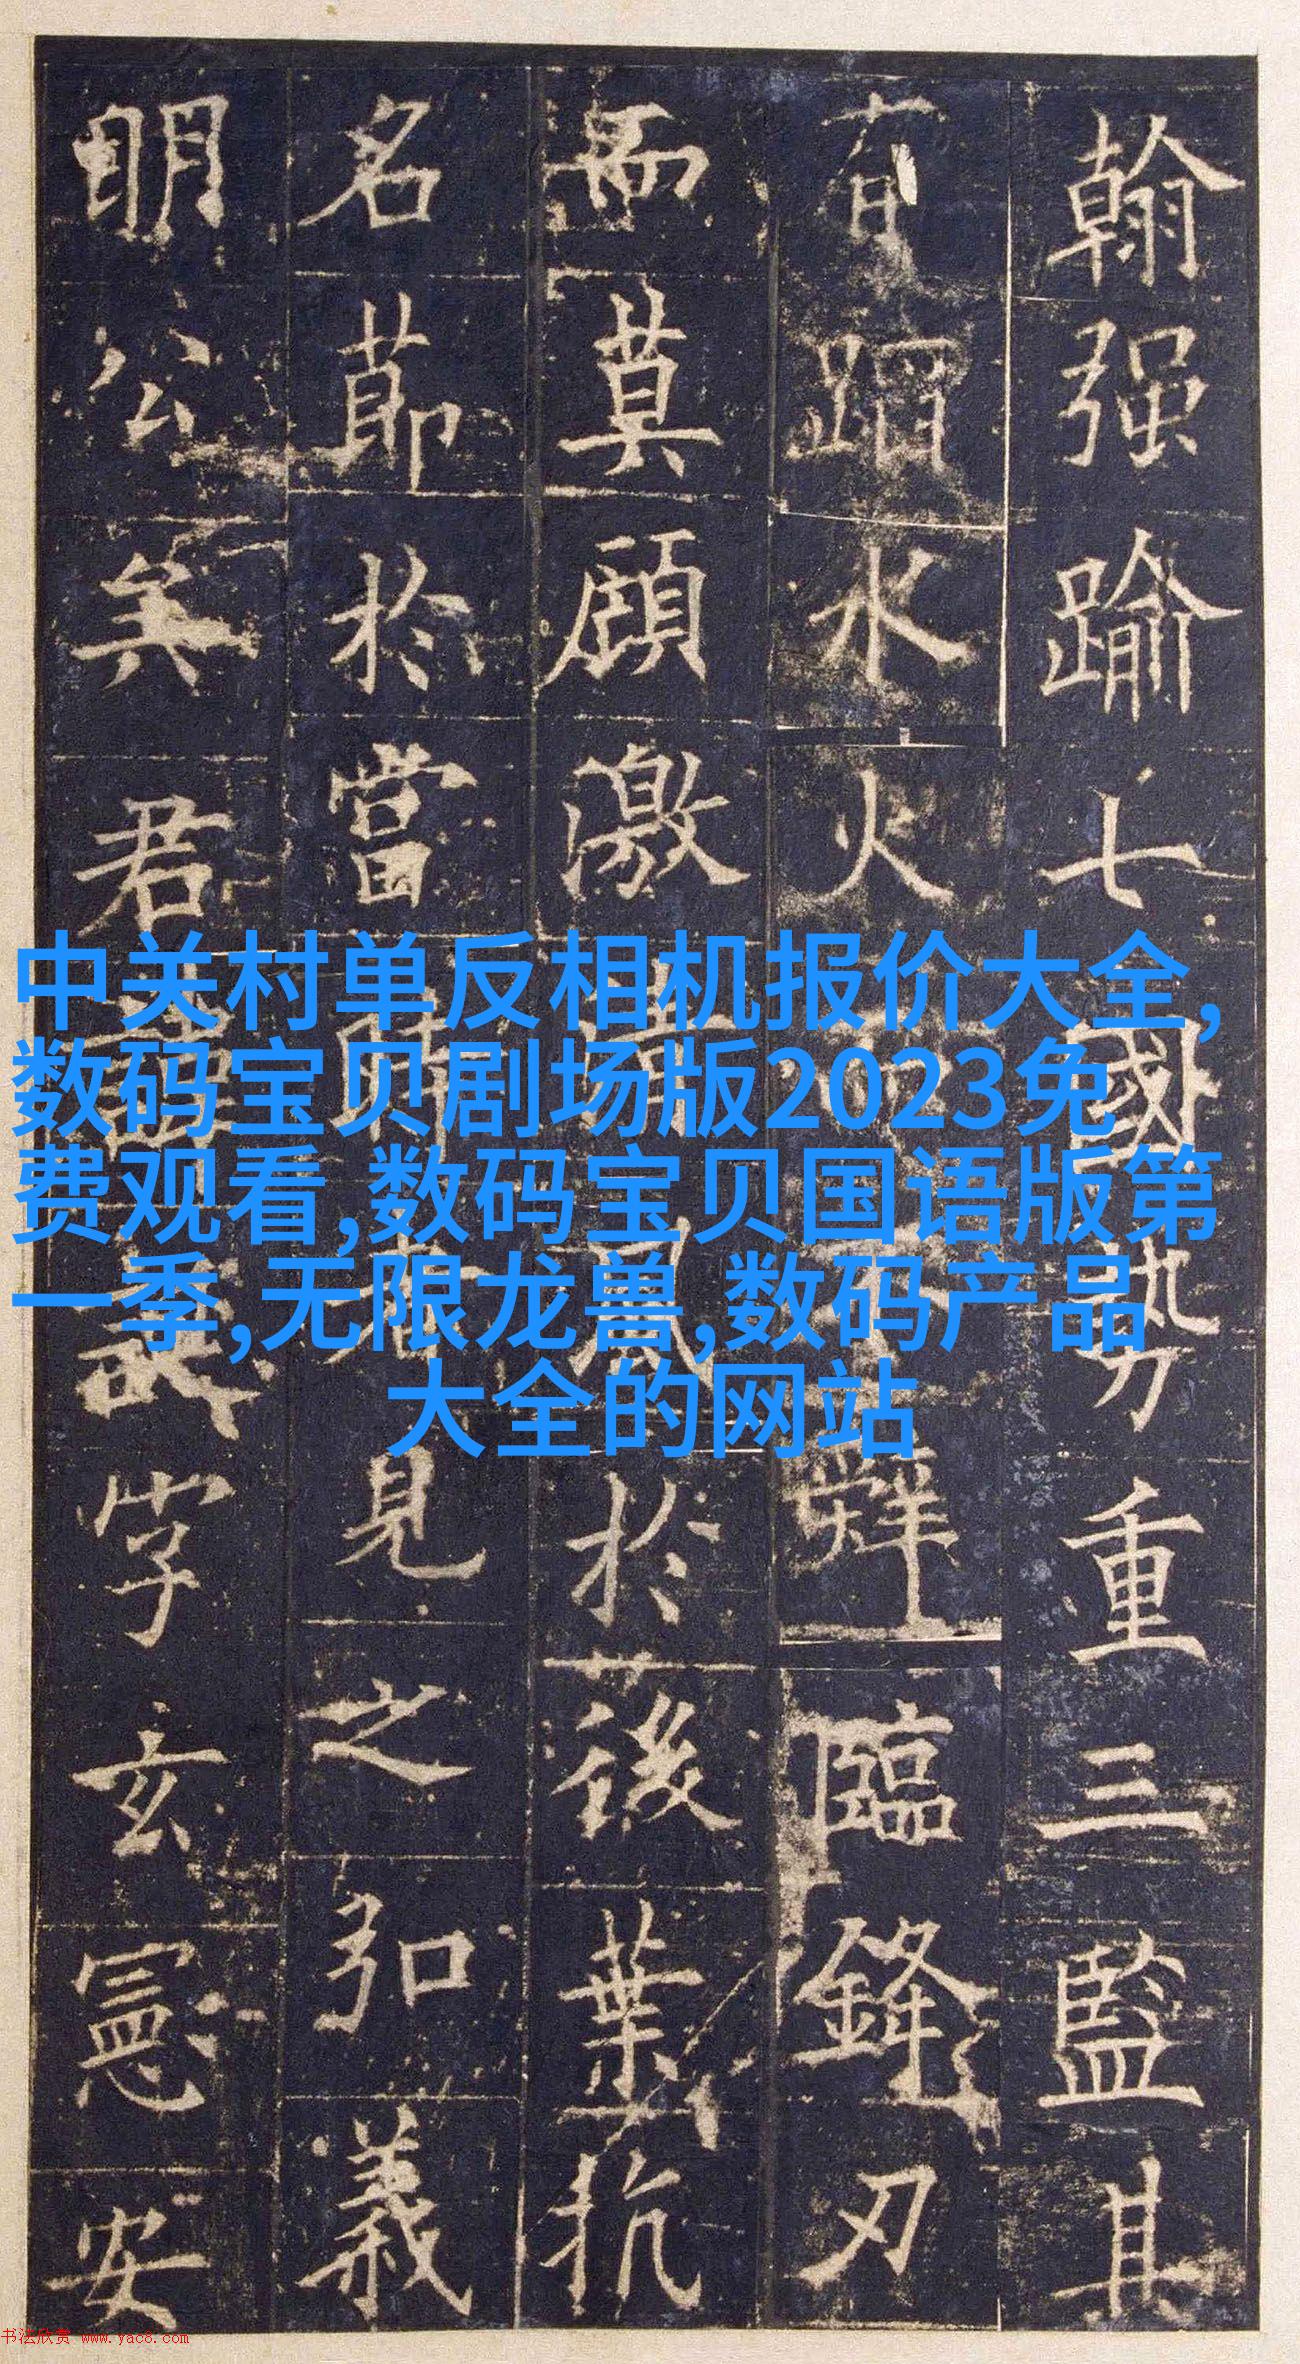 翰强踰七國勢重三監其
有蹈水火而不辤臨鋒刃
而莫顧激清風於後葉抗
名節於當時者見之弘義
明公矣君諱誕字玄憲安
中关村单反相机报价大全,
数码宝贝剧场版2023免
费观看,数码宝贝国语版第
一季,无限龙兽,数码产品
大全的网站
书法欣赏 www.yac8.com